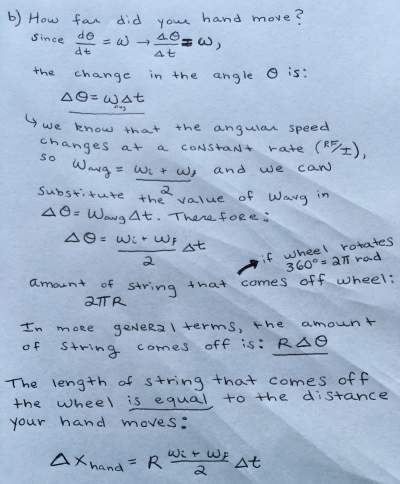 b) How far did your hand move?
since dθ/dt = ω → Δθ/Δt = ω,
the change in the angle θ is:
Δθ = ω_avg Δt
↳ we know that the angular speed
changes at a constant rate (RF/I),
so ω_avg = (ω_i + ω_f)/2 and we can
substitute the value of ω_avg in
Δθ = ω_avg Δt. Therefore:
Δθ = (ω_i + ω_F)/2 Δt
if wheel rotates
360° = 2π rad
amount of string that comes off wheel:
2πR
In more general terms, the amount
of string comes off is: RΔθ
The length of string that comes off
the wheel is equal to the distance
your hand moves:
Δx_hand = R (ω_i + ω_F)/2 Δt